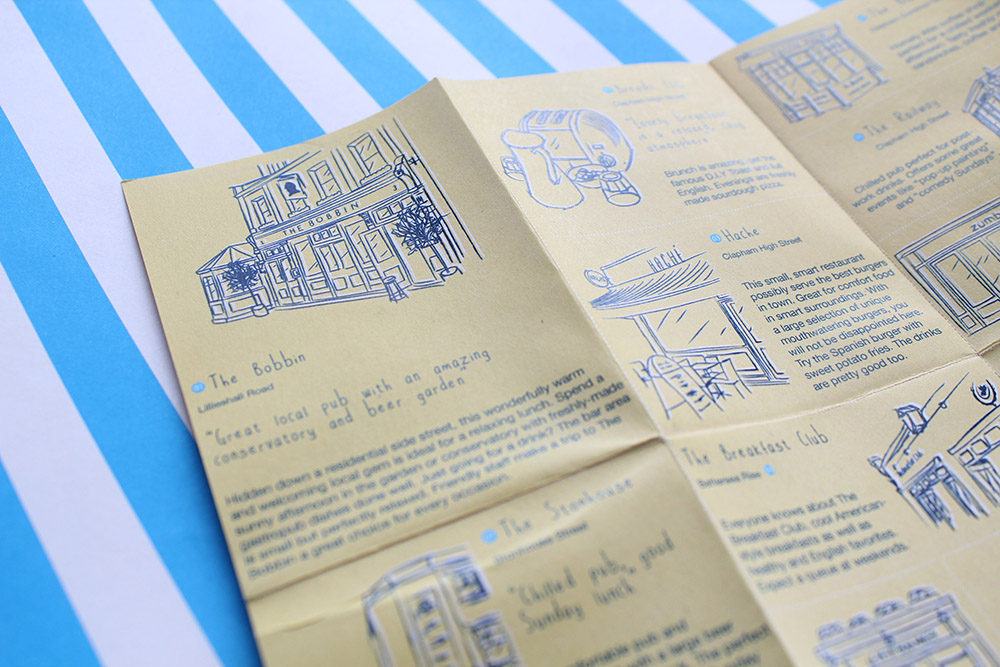 THE BOBBIN
01 The Bobbin
Lillieshall Road
"Great local pub with an amazing
conservatory and beer garden"
Hidden down a residential side street, this wonderfully warm
and welcoming local gem is ideal for a relaxing lunch. Spend a
sunny afternoon in the garden or conservatory with freshly-made
gastropub dishes done well. Just going for a drink? The bar area
is small but perfectly relaxed. Friendly staff make a trip to The
Bobbin a great choice for every occasion.
The Stonhouse
"Chilled pub, good
Sunday lunch"
pub and
large beer
The perfect
"Lovely breakfast
in a relaxed
atmosphere
Brunch is amazing, get the
famous D.I.Y Toast and full
English. Evenings are freshly
made sourdough pizza.
HACHÉ
Hache
Clapham High Street
This small, smart restaurant
possibly serve the best burgers
in town. Great for comfort food
in smart surroundings. With
a large selection of unique
mouthwatering burgers, you
will not be disappointed here.
Try the Spanish burger with
sweet potato fries. The drinks
are pretty good too.
The Breakfast Club
Everyone knows about The
Breakfast Club, cool American-
style breakfasts as well as
healthy and English favorites.
Expect a queue at weekends.
The Railway
Clapham High Street
Chilled pub perfect for post
work drinks. Offers some great
events like "pop-up painting"
and "comedy Sundays"